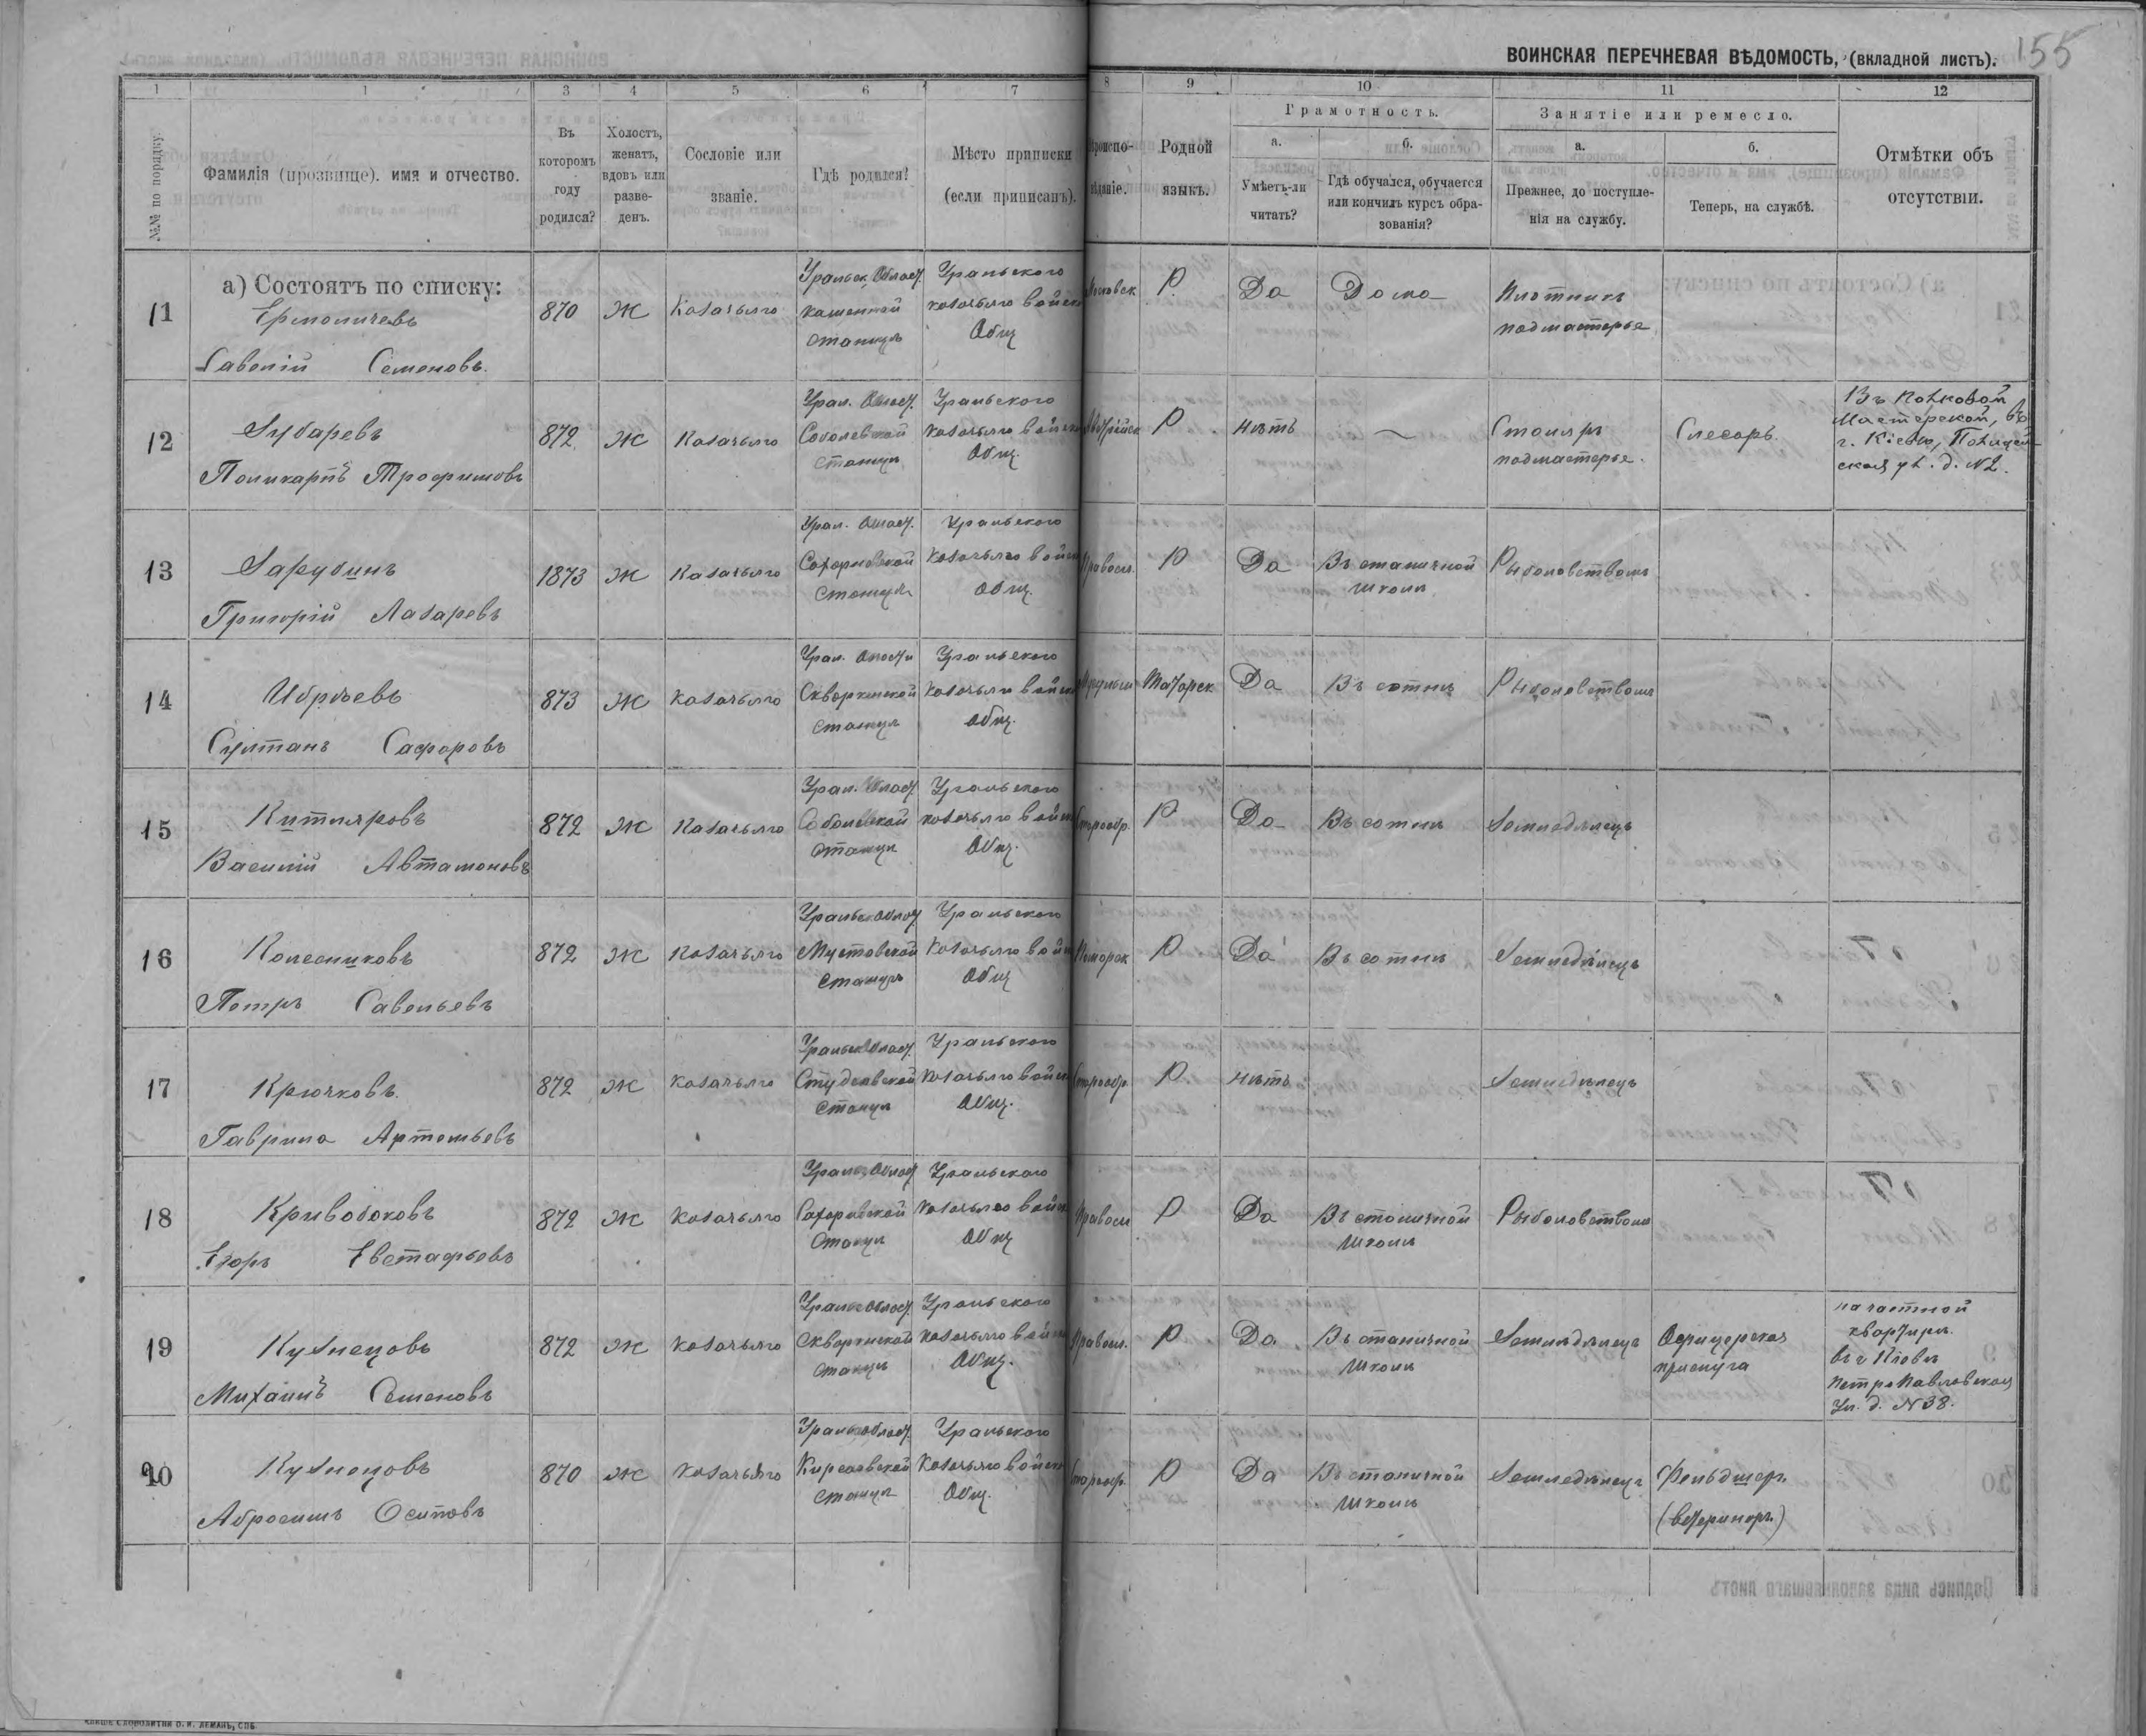 ВОИНСКАЯ ПЕРЕЧНЕВАЯ ВѢДОМОСТЬ, (вкладной листъ). 155
1 1 3 4 5 6 7 8 9 10 11 12
№№ по порядку.
Фамилія (прозвище), имя и отчество.
Въ которомъ году родился?
Холостъ, женатъ, вдовъ или разведенъ.
Сословіе или званіе.
Гдѣ родился?
Мѣсто приписки (если приписанъ).
Родной языкъ.
Грамотность.
а. Умѣетъ-ли читать?
б. Гдѣ обучался, обучается или кончилъ курсъ образованія?
Занятіе или ремесло.
а. Прежнее, до поступленія на службу.
б. Теперь, на службѣ.
Отмѣтки объ отсутствіи.
а) Состоятъ по списку:
11 Ермоличевъ 870 Ж Казачьяго Уральск. Област. Каменной станицы Уральскаго казачьяго войска Общ Р Да Дома Плотникъ подмастерье
Савелій Семеновъ
12 Зубаревъ 872 Ж Казачьяго Урал. Област. Соболевской станицы Уральскаго казачьяго войска Общ. Р Нѣтъ — Столяръ подмастерье. Слесарь. Въ Полковой Мастерской, въ г. Кіевѣ, Полицейская ул. д. №2.
Поликарпъ Трофимовъ
13 Зарубинъ 1873 Ж Казачьяго Урал. Област. Сахарновской станицы Уральскаго казачьяго войска Общ. Правосл. Р Да Въ станичной школѣ Рыболовствомъ
Григорій Лазаревъ
14 Ибряевъ 873 Ж Казачьяго Урал. Области Скворкинской станицы Уральскаго казачьяго войска Общ. Татарск Да Въ сотнѣ Рыболовствомъ
Султанъ Сафаровъ
15 Китляровъ 872 Ж Казачьяго Урал. Област. Соболевской станицы Уральскаго казачьяго войска Общ. Старообр. Р Да Въ сотнѣ Земледѣлецъ
Василій Автамоновъ
16 Колесниковъ 872 Ж Казачьяго Уральск. Област Мустаевской станицы Уральскаго казачьяго войска Общ Поморск Р Да Въ сотнѣ Земледѣлецъ
Петръ Савельевъ
17 Крючковъ 872 Ж Казачьяго Уральск. Област. Студеновской станицы Уральскаго казачьяго войска Общ. Старообр. Р. Нѣтъ Земледѣлецъ
Гаврила Артемьевъ
18 Кривобоковъ 872 Ж Казачьяго Уральс. Област Сахарновской станицы Уральскаго казачьяго войска Общ Правосл Р Да Въ станичной школѣ Рыболовствомъ
Егоръ Евстафьевъ
19 Кузнецовъ 872 Ж Казачьяго Уральс. Област. Скворкинской станицы Уральскаго казачьяго войска Общ. Правосл. Р Да Въ станичной школѣ Земледѣлецъ Офицерская прислуга на частной квартирѣ въ г Кіевѣ Петропавловская ул. д. №38.
Михаилъ Семеновъ
20 Кузнецовъ 870 Ж Казачьяго Уральск. Област. Кирсановской станицы Уральскаго казачьяго войска Общ. Старообр. Р Да Въ станичной школѣ Земледѣлецъ Фельдшеръ (ветеринаръ)
Абросимъ Осиповъ